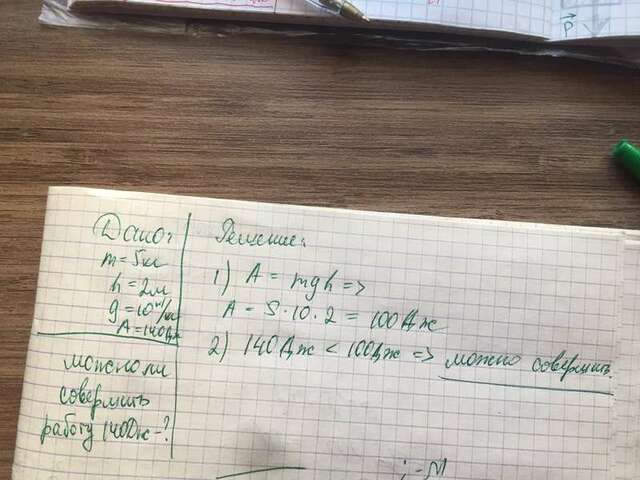 P
Дано:
m = 5кг
h = 2м
g = 10 м/кг
A = 140Дж
можно ли
совершить
работу 140Дж - ?
Решение:
1) A = mgh =>
A = 5·10·2 = 100Дж
2) 140Дж < 100Дж => можно совершить.